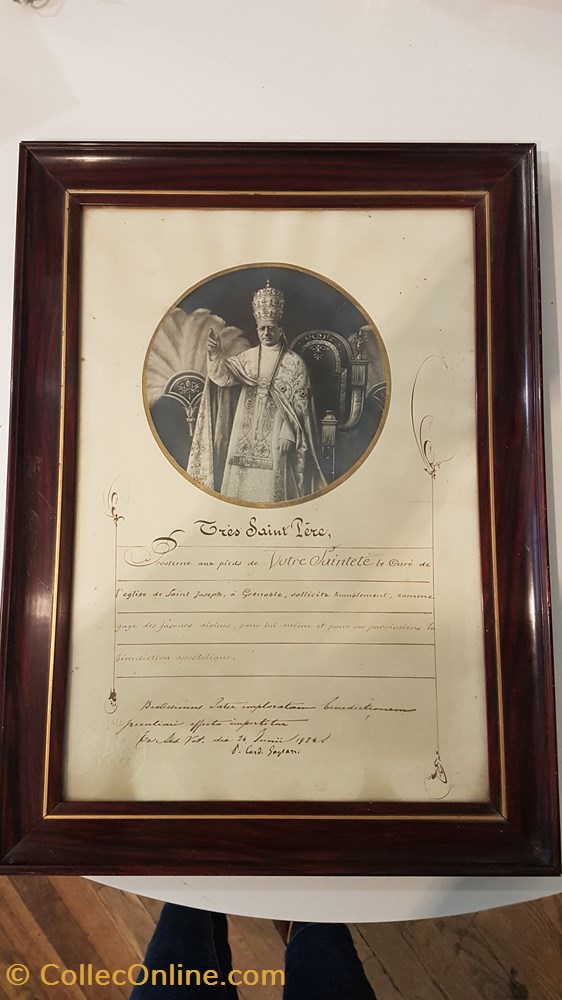 Très Saint Père,
Prosterné aux pieds de Votre Sainteté le Curé de
l'église de Saint Joseph, à Grenoble, sollicite humblement, comme
gage des faveurs divines, pour lui-même et pour ses paroissiens la
bénédiction apostolique.
Beatissimus Pater imploratam benedictionem
peculiari affectu impertitur
Ex Aed. Vat. die 24 Junii 1924
P. Card. Gasparri
© CollecOnline.com